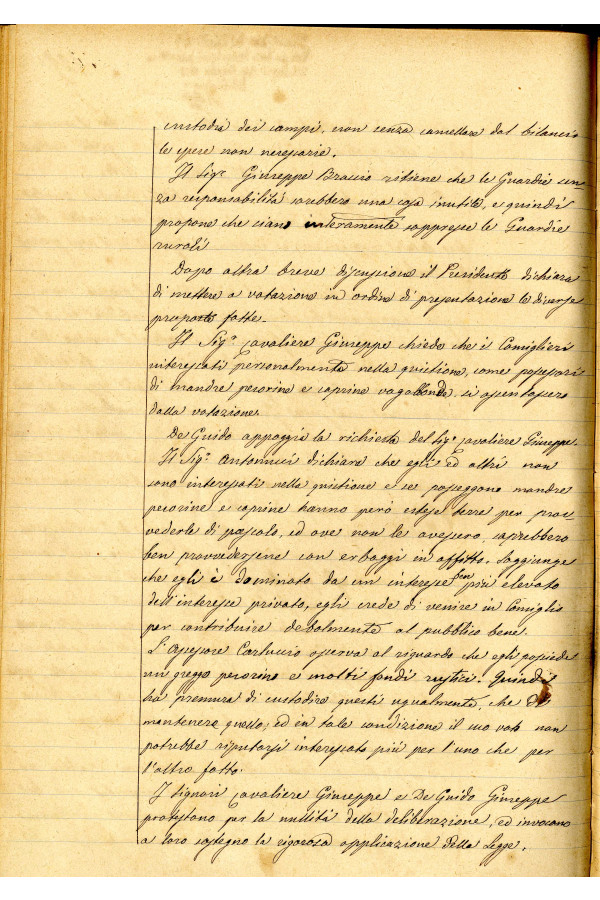 custodia dei campi, non senza cancellare dal bilancio
le spese non necessarie.
Il Sig.r Giuseppe Braccio ritiene che le Guardie sen-
za responsabilità sarebbero una cosa inutile, e quindi
propone che siano interamente soppresse le Guardie
rurali
Dopo altra breve discussione il Presidente dichiara
di mettere a votazione in ordine di presentazione le diverse
proposte fatte.
Il Sig.r Cavaliere Giuseppe chiede che i Consiglieri
interessati personalmente nella quistione, come possessori
di mandre pecorine e caprine vagabonde, si astenessero
dalla votazione.
De Guido appoggia la richiesta del Sig.r Cavaliere Giuseppe.
Il Sig.r Antonucci dichiara che egli ed altri non
sono interessati nella quistione e se posseggono mandre
pecorine e caprine hanno però estese terre per prov-
vederle di pascolo, ed ove non le avessero, saprebbero
ben provvedersene con erbaggi in affitto. Soggiunge
che egli è dominato da un interesse ben più elevato
dell'interesse privato, egli crede di venire in Consiglio
per contribuire debolmente al pubblico bene.
L'Assessore Carluccio osserva al riguardo che egli possiede
un gregge pecorino e molti fondi rustici. Quindi
ha premura di custodire questi ugualmente, che di
mantenere quello; ed in tale condizione il suo voto non
potrebbe riputarsi interessato più per l'uno che per
l'altro fatto.
I signori Cavaliere Giuseppe e De Guido Giuseppe
protestano per la nullità della deliberazione, ed invocano
a loro sostegno la rigorosa applicazione della Legge.